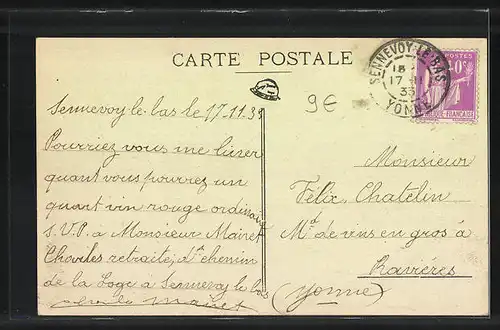 CARTE POSTALE
SENNEVOY-LE-BAS
17
33
YONNE
POSTES
40c
FRANÇAISE
9€
Sennevoy le bas le 17.11.33
Pourriez vous me livrer
quant vous pourrez un
quart vin rouge ordinaire
S.V.P à Monsieur Mairet
Charles retraité, dt chemin
de la Loge à Sennevoy le bas
Mairet
Monsieur
Félix Chatelin
Md de vins en gros à
Ravières
(Yonne)